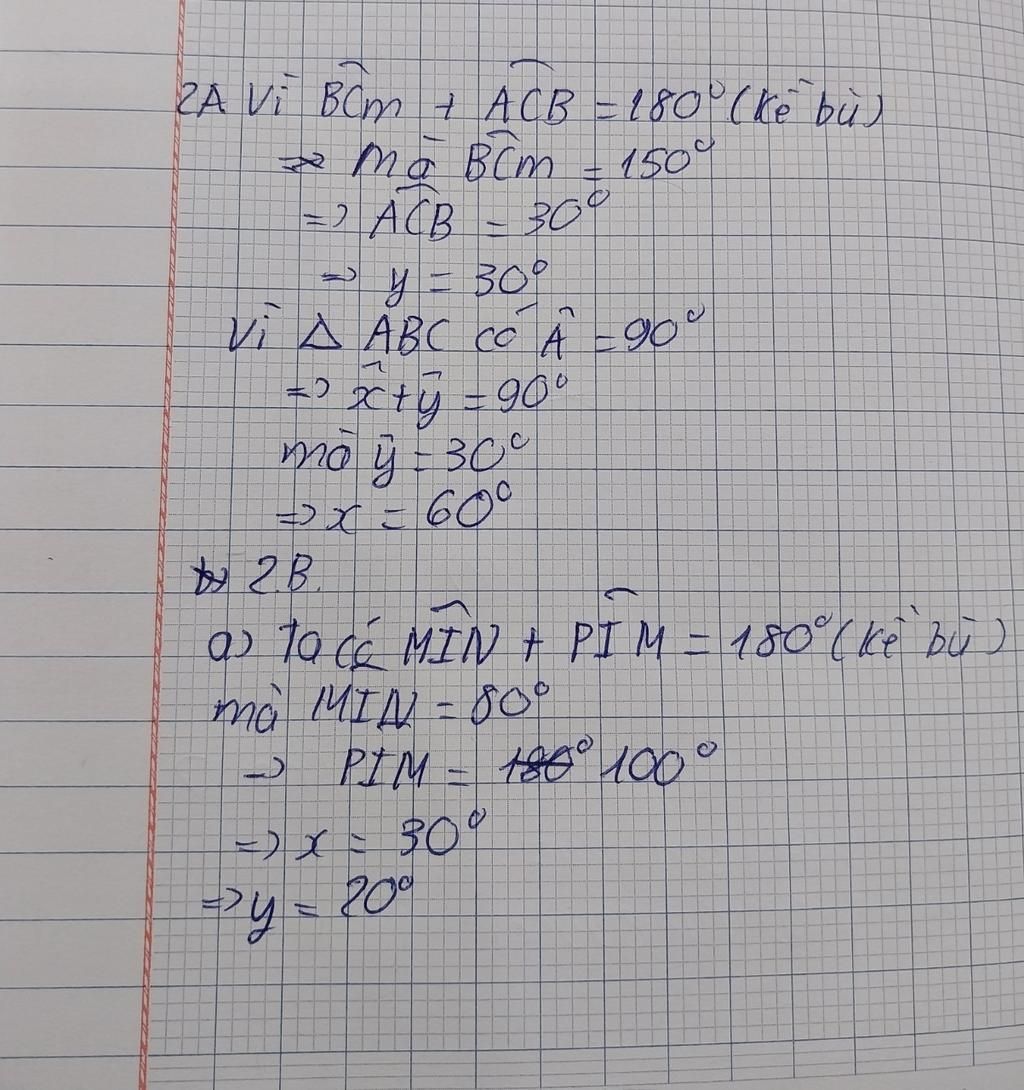 2A Vì BCm + ACB = 180° (kề bù)
mà BCm = 150°
=> ACB = 30°
=> y = 30°
Vì △ ABC có Â = 90°
=> x̂ + ŷ = 90°
mà ŷ = 30°
=> x = 60°
2B.
a) Ta có MIN + PIM = 180° (kề bù)
mà MIN = 80°
=> PIM = 100°
=> x = 30°
=> y = 20°